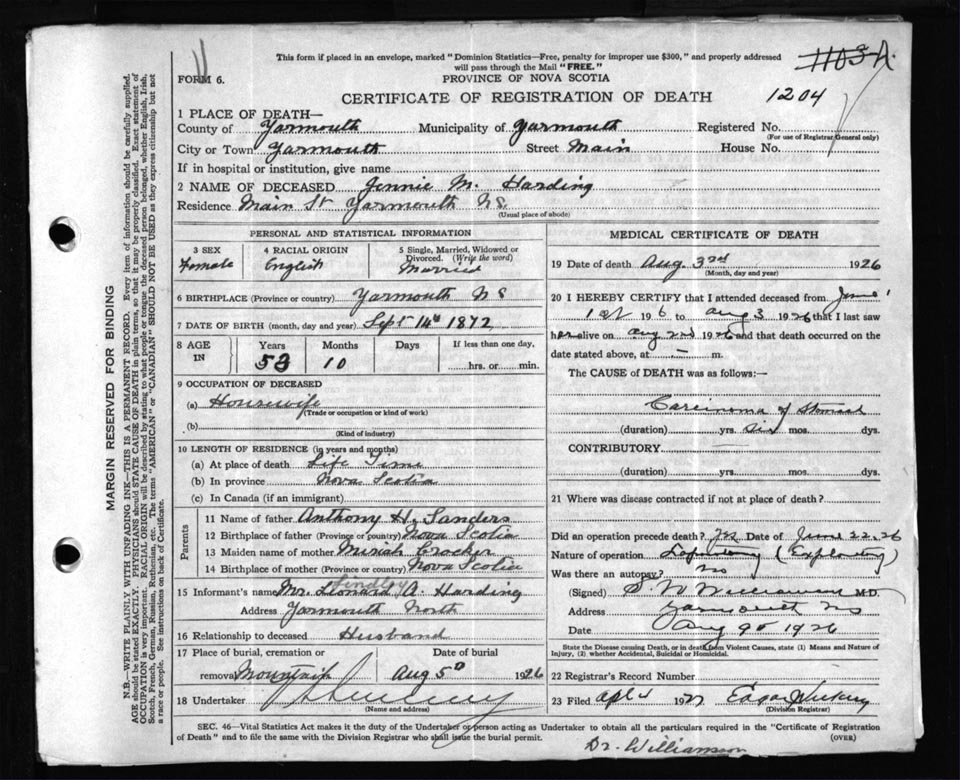 This form if placed in an envelope, marked "Dominion Statistics—Free, penalty for improper use $300," and properly addressed
will pass through the Mail "FREE."
FORM 6.
PROVINCE OF NOVA SCOTIA
CERTIFICATE OF REGISTRATION OF DEATH
1204
1 PLACE OF DEATH—
County of Yarmouth Municipality of Yarmouth Registered No.
(For use of Registrar General only)
City or Town Yarmouth Street Main House No.
If in hospital or institution, give name
2 NAME OF DECEASED Jennie M. Harding
Residence Main St Yarmouth NS
(Usual place of abode)
PERSONAL AND STATISTICAL INFORMATION
3 SEX
Female
4 RACIAL ORIGIN
English
5 Single, Married, Widowed or
Divorced. (Write the word)
Married
6 BIRTHPLACE (Province or country) Yarmouth NS
7 DATE OF BIRTH (month, day and year) Sept 14th 1872
8 AGE IN
Years Months Days If less than one day,
53 10 hrs. or min.
9 OCCUPATION OF DECEASED
(a) Housewife
(Trade or occupation or kind of work)
(b)
(Kind of industry)
10 LENGTH OF RESIDENCE (in years and months)
(a) At place of death Life Time
(b) In province Nova Scotia
(c) In Canada (if an immigrant)
Parents
11 Name of father Anthony H. Sanders
12 Birthplace of father (Province or country) Nova Scotia
13 Maiden name of mother Miriah Crocker
14 Birthplace of mother (Province or country) Nova Scotia
Lindley
15 Informant's name Mr. Leonard A. Harding
Address Yarmouth North
16 Relationship to deceased Husband
17 Place of burial, cremation or Date of burial
removal Mountain Aug 5th 1926
18 Undertaker
(Name and address)
MEDICAL CERTIFICATE OF DEATH
19 Date of death Aug. 3rd 1926
(Month, day and year)
20 I HEREBY CERTIFY that I attended deceased from June
1st 1926 to Aug 3 1926 that I last saw
her alive on Aug 2nd 1926 and that death occurred on the
date stated above, at — m.
The CAUSE of DEATH was as follows:—
Carcinoma of Stomach
(duration) yrs. six mos. dys.
CONTRIBUTORY
(duration) yrs. mos. dys.
21 Where was disease contracted if not at place of death?
Did an operation precede death? Yes Date of June 22.26
Nature of operation Laparotomy (Exploratory)
Was there an autopsy? no
(Signed) S. W Williamson M.D.
Address Yarmouth NS
Date Aug 9th 1926
State the Disease causing Death, or in death from Violent Causes, state (1) Means and Nature of
Injury, (2) whether Accidental, Suicidal or Homicidal.
22 Registrar's Record Number
23 Filed Apl 4 1927
(Division Registrar)
SEC. 46—Vital Statistics Act makes it the duty of the Undertaker or person acting as Undertaker to obtain all the particulars required in the "Certificate of Registration
of Death" and to file the same with the Division Registrar who shall issue the burial permit.
(OVER)
Dr. Williamson
MARGIN RESERVED FOR BINDING
N.B.—WRITE PLAINLY WITH UNFADING INK—THIS IS A PERMANENT RECORD. Every item of information should be carefully supplied.
AGE should be stated EXACTLY. PHYSICIANS should STATE CAUSE OF DEATH in plain terms, so that it may be properly classified. Exact statement of
OCCUPATION is very important. RACIAL ORIGIN will be described by stating to what people or tongue the deceased person belonged, whether English, Irish,
Scotch, French, German, Russian, Ruthenian, etc. The terms "AMERICAN" or "CANADIAN" SHOULD NOT BE USED as they express citizenship but not
a race or people. See instructions on back of Certificate.